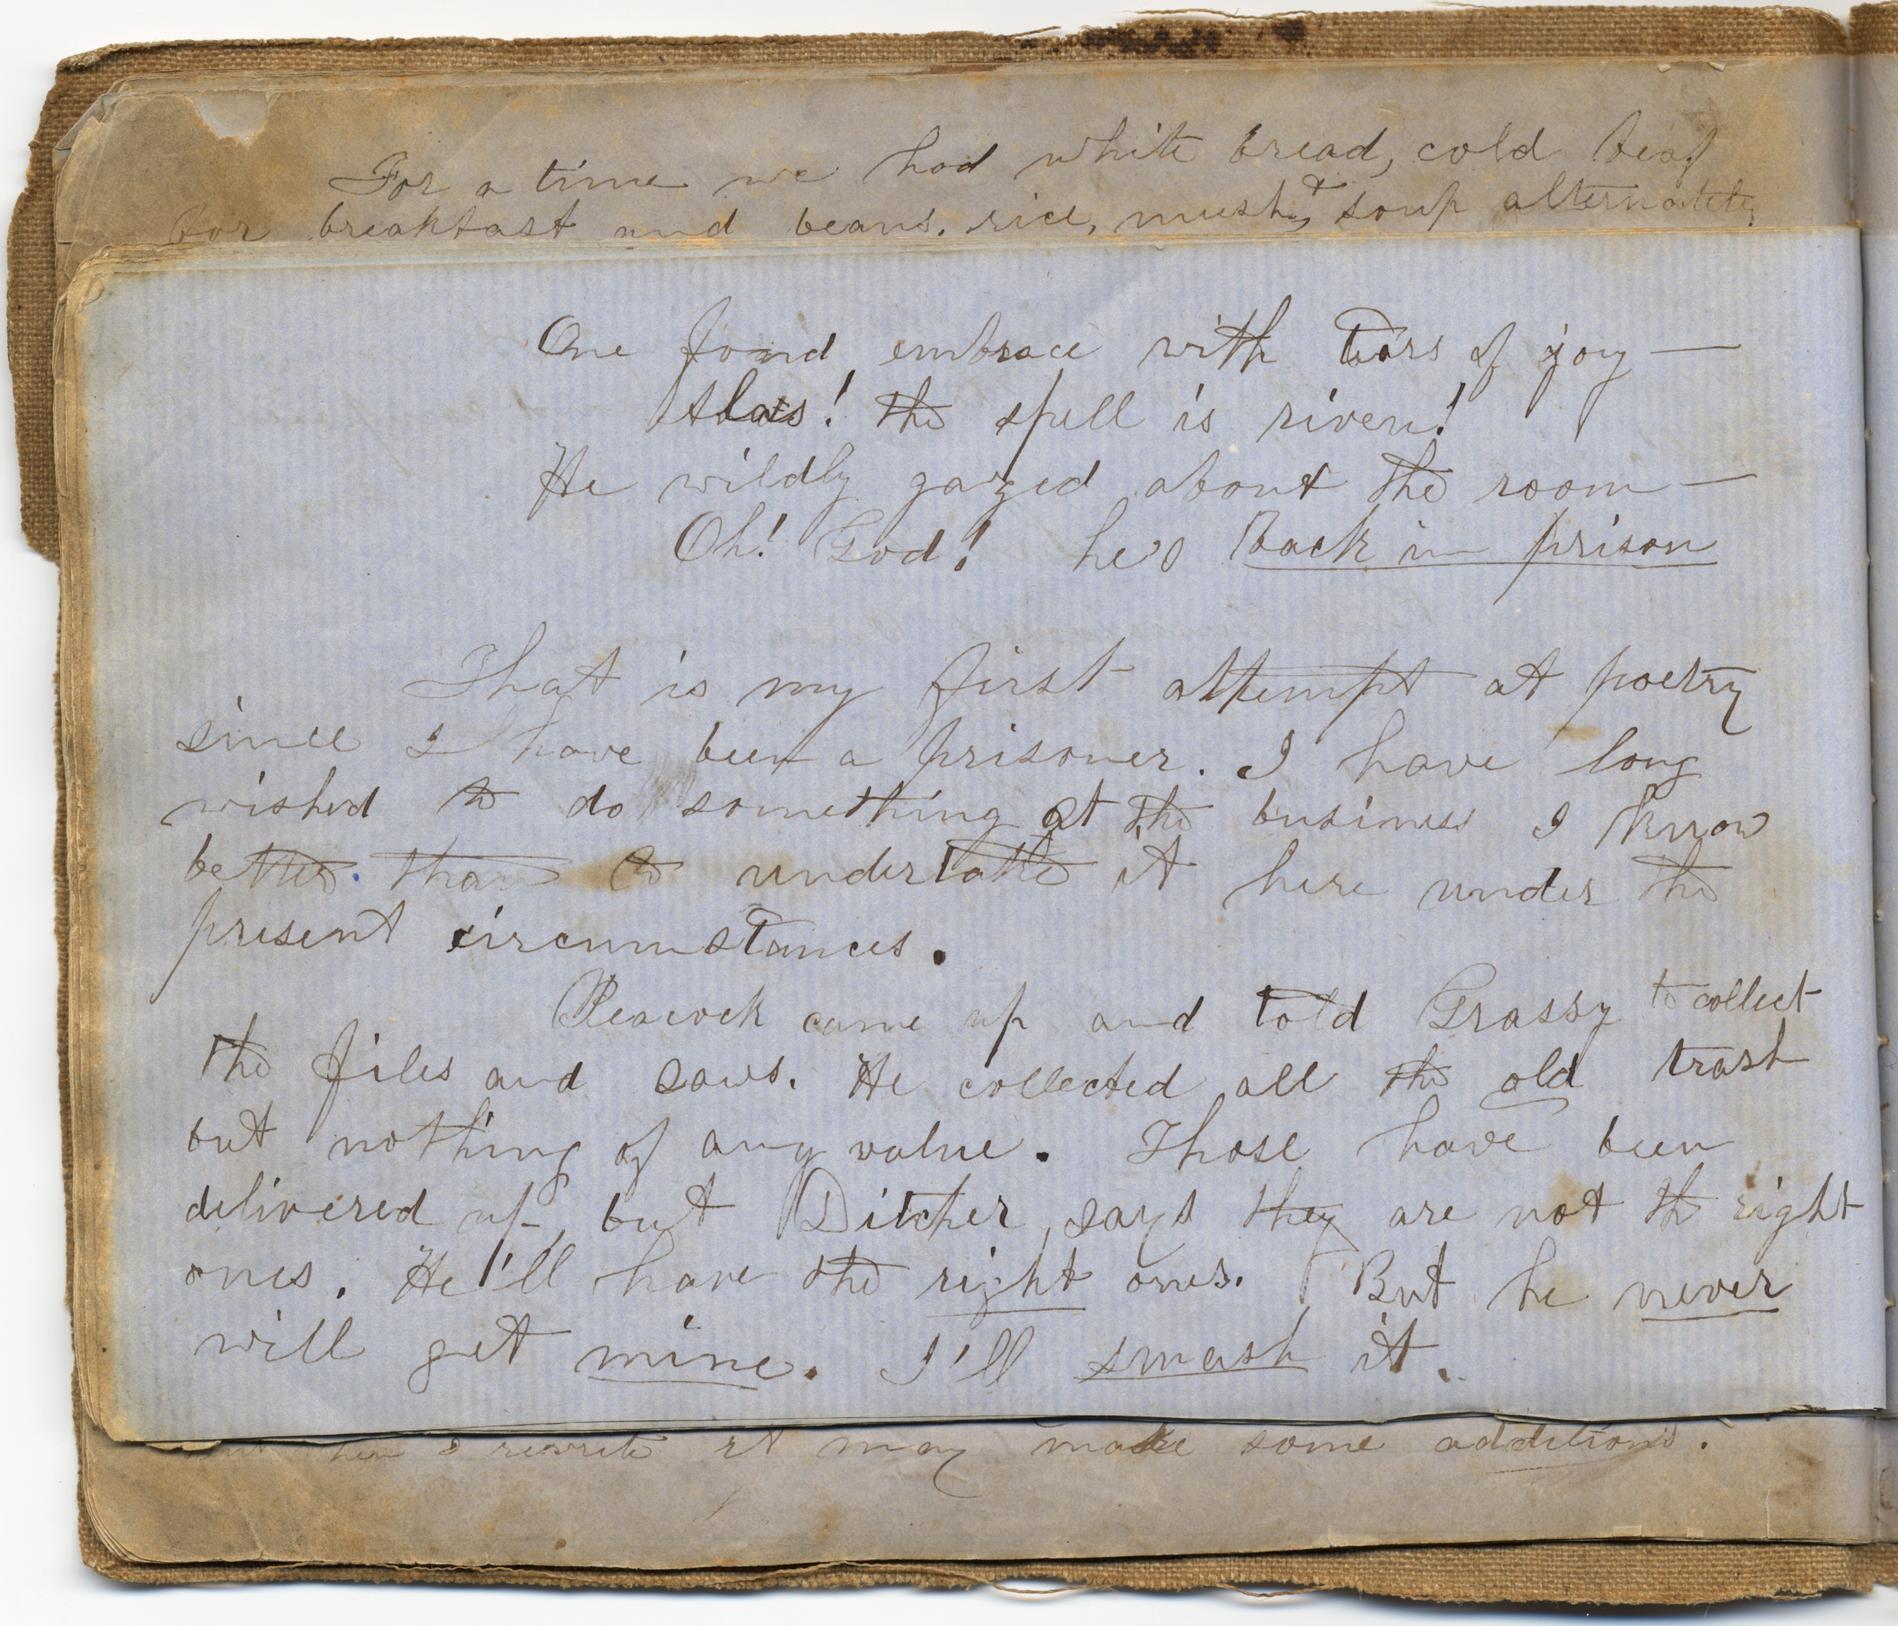 For a time we had white bread, cold beaf
for breakfast and beans, rice, mush, & soup alternately
One fond embrace with tears of joy —
Alas! the spell is riven!
He wildly gazed about the room —
Oh! God! he's back in prison
That is my first attempt at poetry
since I have been a prisoner. I have long
wished to do something at the business I know
better than to undertake it here under the
present circumstances.
Peacock came up and told Grassy to collect
the files and saws. He collected all the old trash
but nothing of any value. Those have been
delivered up, but Ditcher says they are not the right
ones. He'll have the right ones. But he never
will get mine. I'll smash it.
when I rewrite it may make some additions.